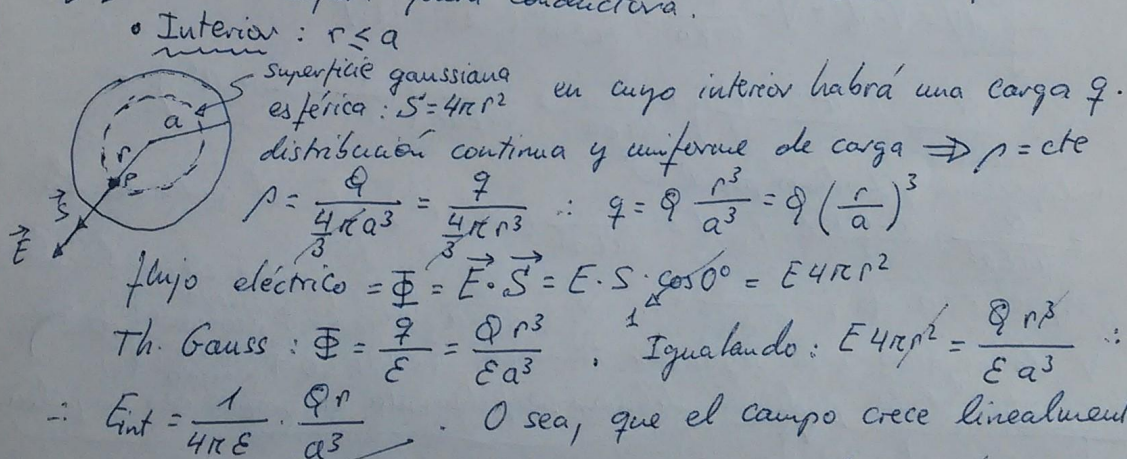 para conductora.
• Interior : r ≤ a
superficie gaussiana
esférica : S = 4πr² en cuyo interior habrá una carga q.
distribución continua y uniforme de carga ⇒ ρ = cte
ρ = Q / (4/3 πa³) = q / (4/3 πr³) ∴ q = Q r³/a³ = Q (r/a)³
a
r
P
S⃗
E⃗
flujo eléctrico = Φ = E⃗ · S⃗ = E · S · cos0° = E 4πr²
1
Th. Gauss : Φ = q/ε = Q r³/(ε a³) . Igualando : E 4πr² = Q r³/(ε a³) ∴
∴ Eint = 1/(4πε) · Q r/a³ . O sea, que el campo crece linealment